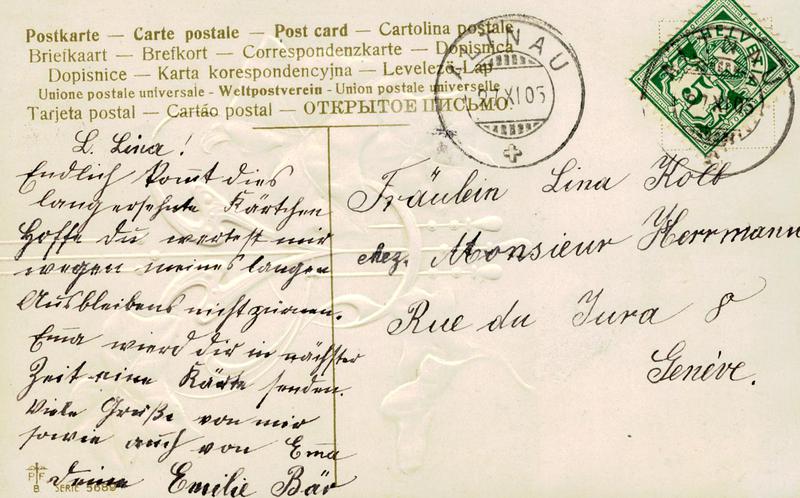 Postkarte — Carte postale — Post card — Cartolina postale
Briefkaart — Brefkort — Correspondenzkarte — Dopisnica
Dopisnice — Karta korespondencyjna — Levelező-Lap
Unione postale universale - Weltpostverein - Union postale universelle
Tarjeta postal — Cartão postal — ОТКРЫТОЕ ПИСЬМО
ALTNAU
XI 05
HELVETIA
5
L. Lina!
Endlich kommt dies
langersehnte Kärtchen
Hoffe du wertest mir
wegen meines langen
Ausbleibens nicht zürnen.
Emma wierd dir in nächster
Zeit eine Kärte senden.
Viele Grüße von mir
sowie auch von Emma
deine Emilie Bär
Fräulein Lina Kolb
chez. Monsieur Herrmann
Rue du Jura 8
Genéve.
PF
B SERIE 5680